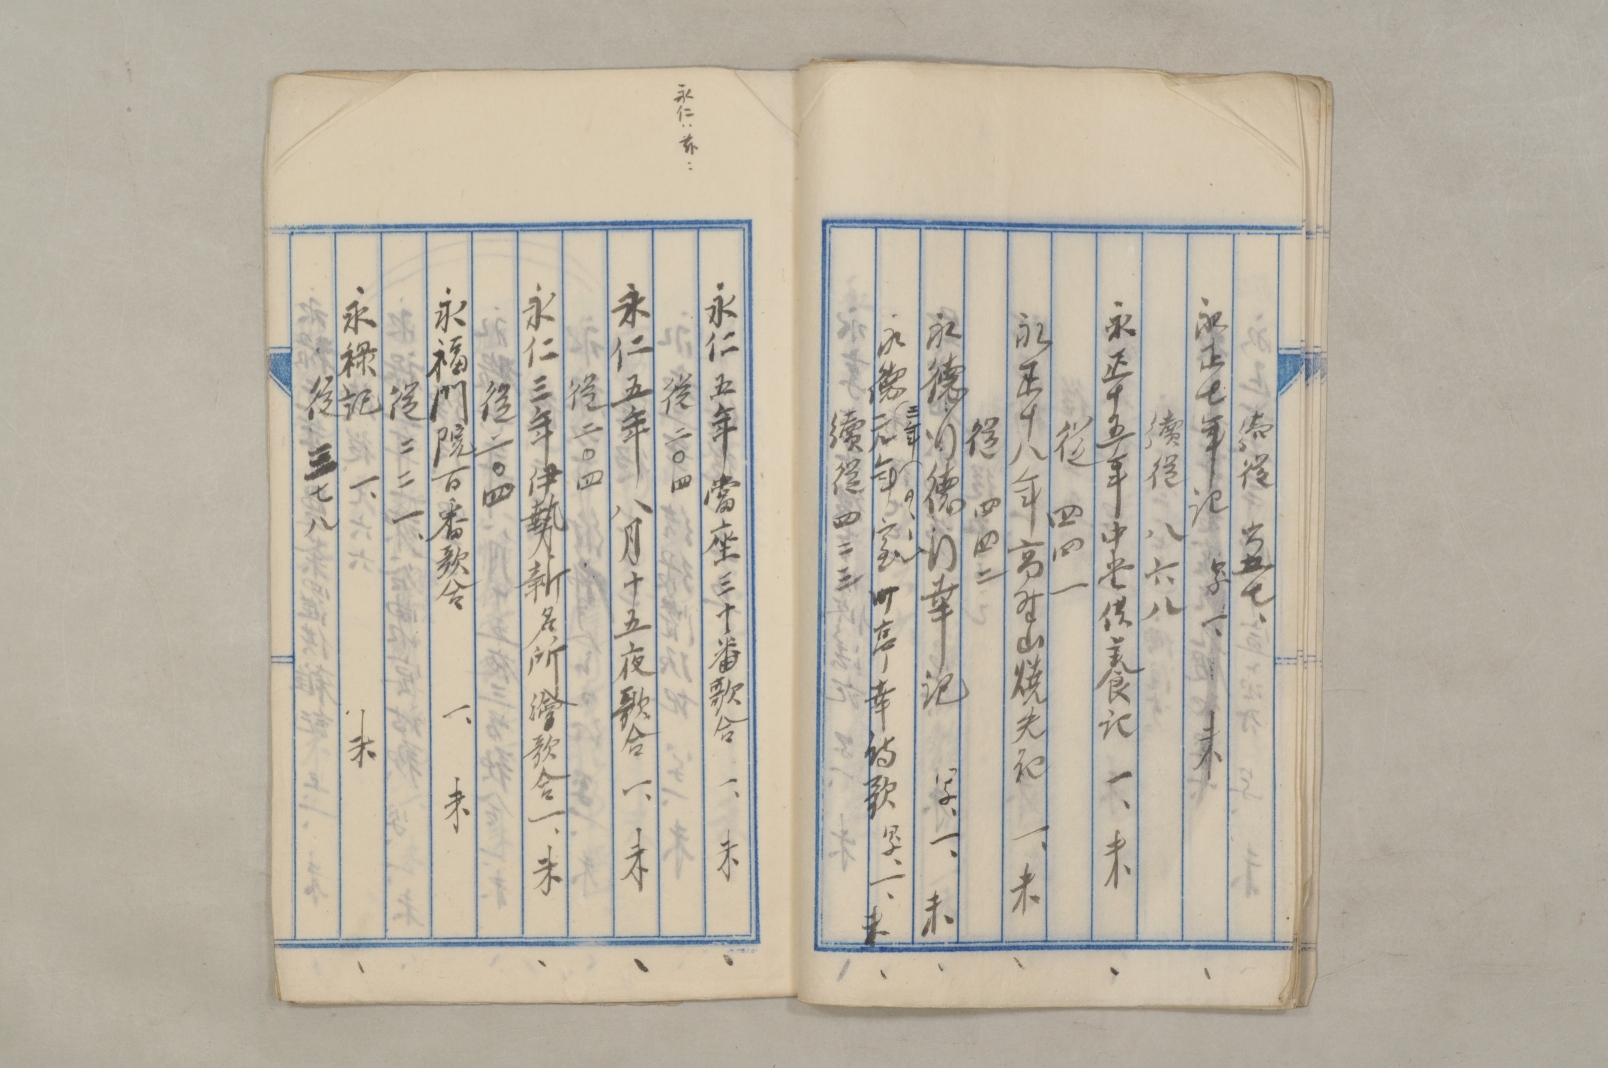 續從 五七、
永正七年記 写一、 未
續從 八六八
永正十五年中堂供養記 一、未
從 四四一
永正十八年高野山焼失記 一、未
從 四四二
永徳行幸記 写、一、未
永徳元年室町亭行幸詩歌 写、一、未
三年
續從 四二三
永仁
永仁五年當座三十番歌合 一、未
從 二〇四
永仁五年八月十五夜歌合 一、未
從 二〇四
永仁三年伊勢新名所繪歌合 一、未
從 二〇四
永福門院百番歌合 一、未
從 二二一、
永祿記 一、 未
從 三七八